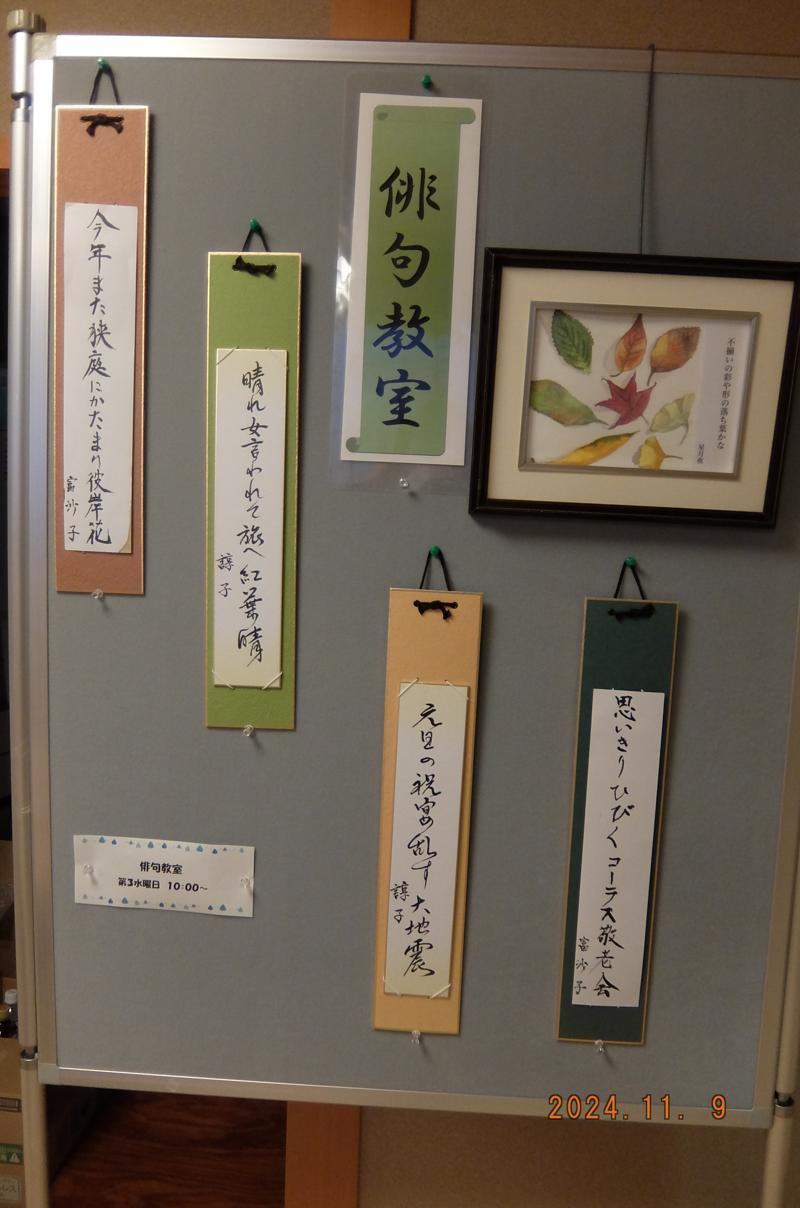 俳句教室
不揃いの彩や形の落ち葉かな
星月夜
思いきりひびくコーラス敬老会
富沙子
元旦の祝宴乱す大地震
諄子
晴れ女言われて旅へ紅葉晴
諄子
今年また狭庭にかたまり彼岸花
富沙子
俳句教室
第3水曜日 10:00～
2024.11. 9